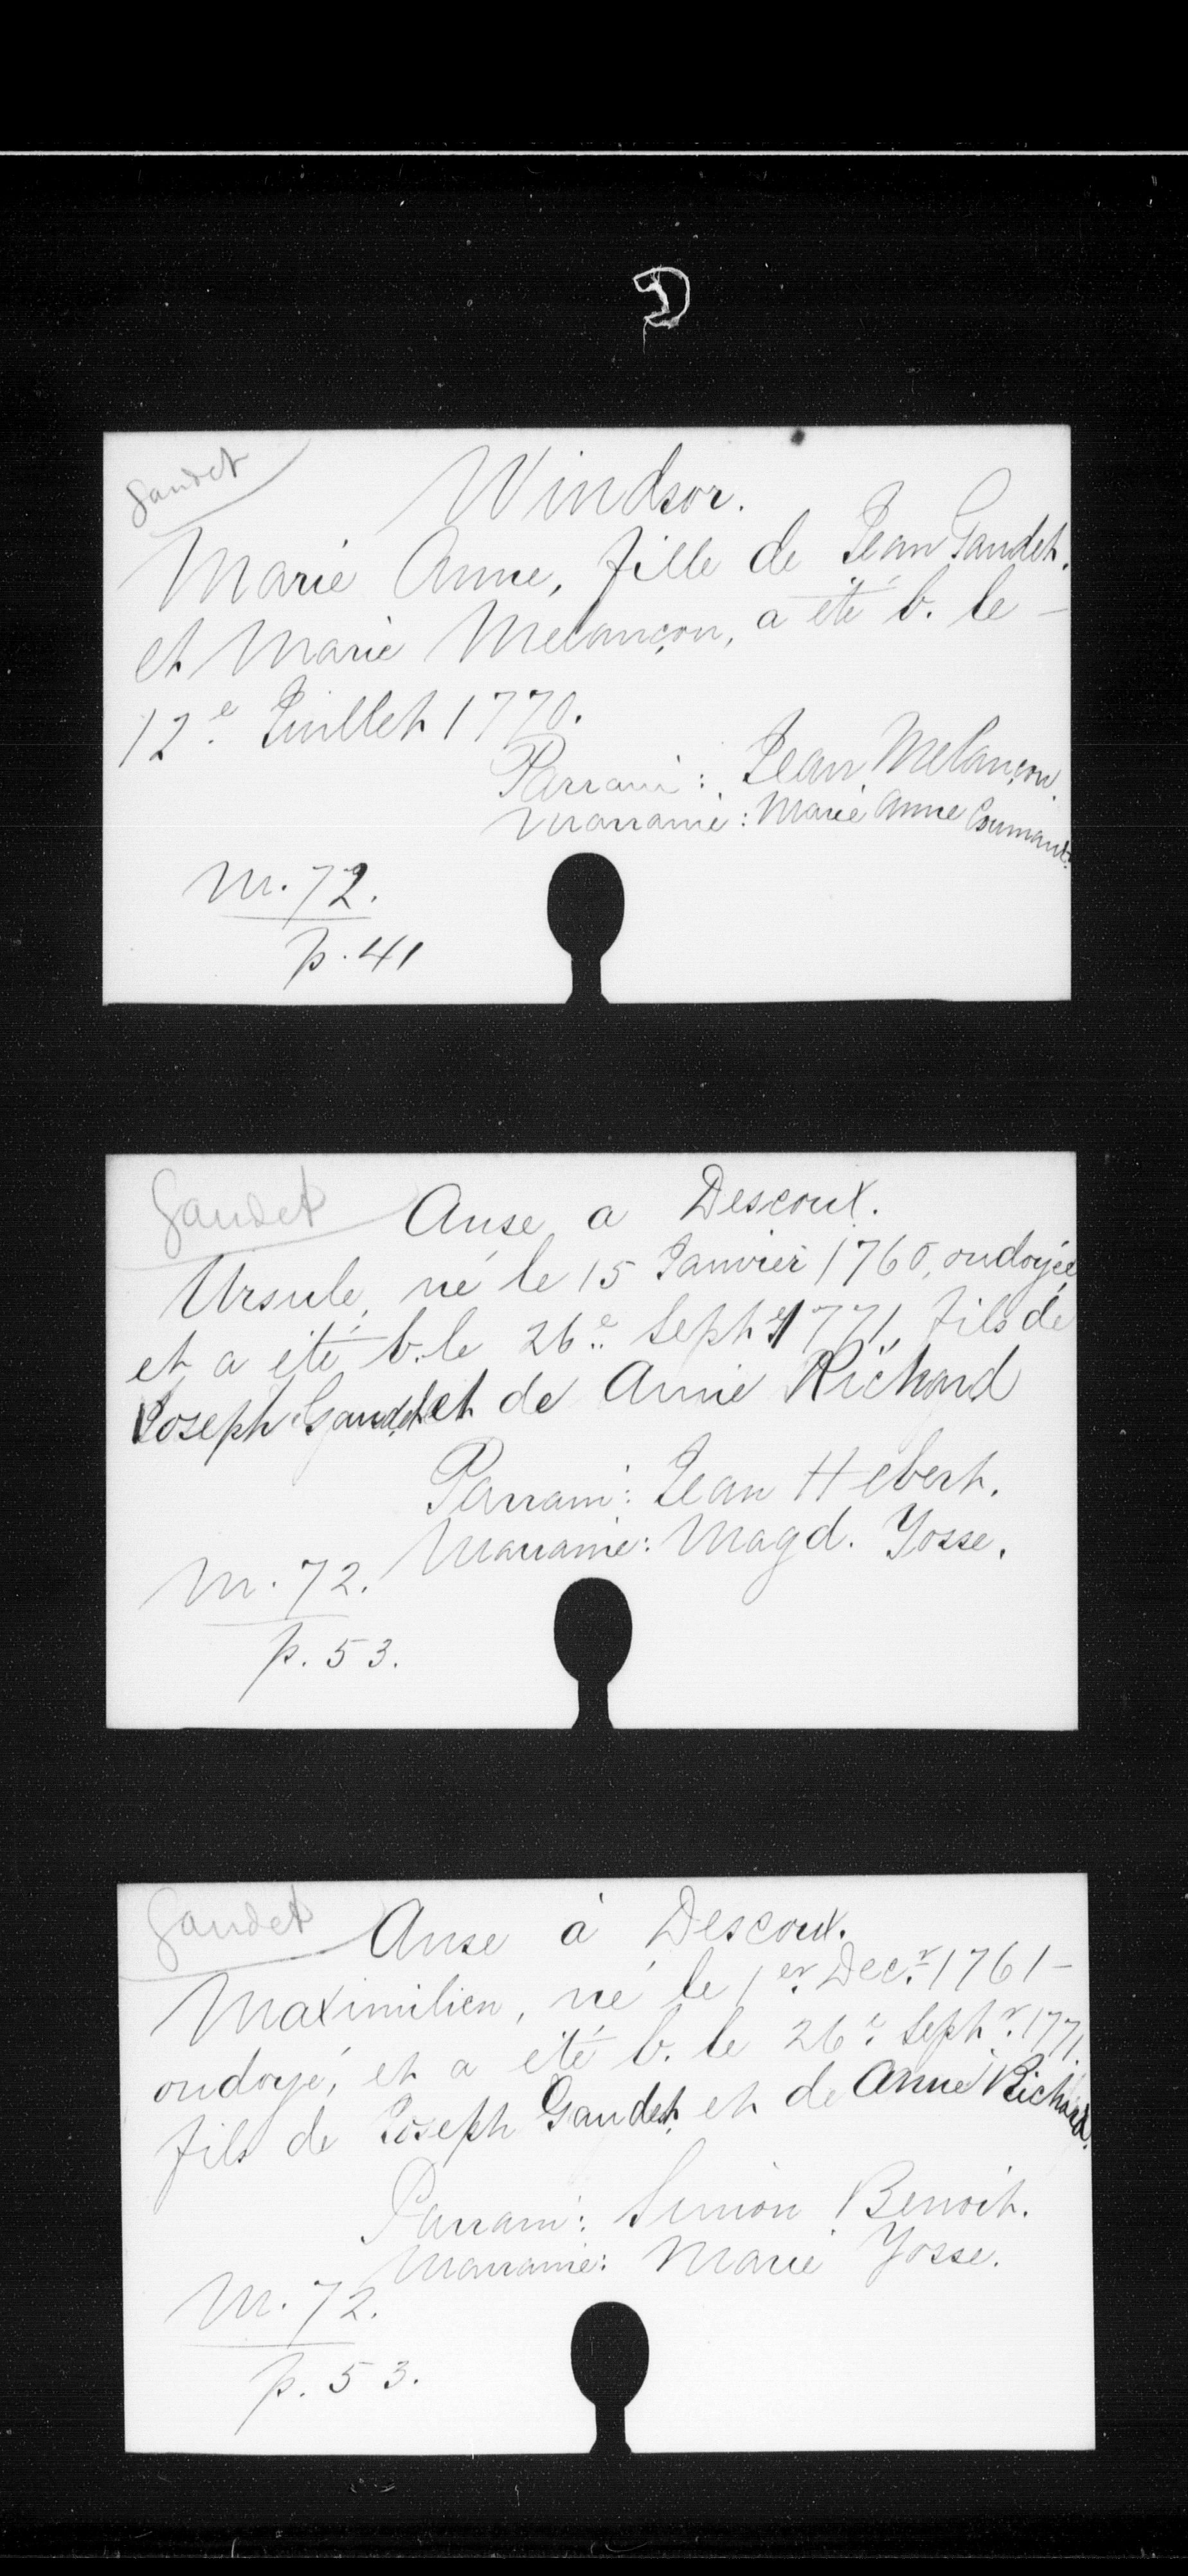 Gaudet
Windsor.
Marie Anne, fille de Jean Gaudet.
et Marie Melançon, a été b. le -
12e Juillet 1770.
Parrain: Jean Melançon.
Marraine: Marie Anne
M. 72.
p. 41
Gaudet
Anse a Descoux.
Ursule, né le 15 Janvier 1760, ondoyée
et a été b. le 26e Sept 1771, fils de
Joseph Gaudet et de Anne Richard
Parrain: Jean Hebert.
Marraine: Magd. Josse.
M. 72.
p. 53.
Gaudet
Anse à Descoux.
Maximilien, né le 1er Decr 1761 -
ondoyé, et a été b. le 26e Septr. 1771.
fils de Joseph Gaudet et de Anne Richard.
Parrain: Simon Benoit.
Marraine: Marie Josse.
M. 72.
p. 53.